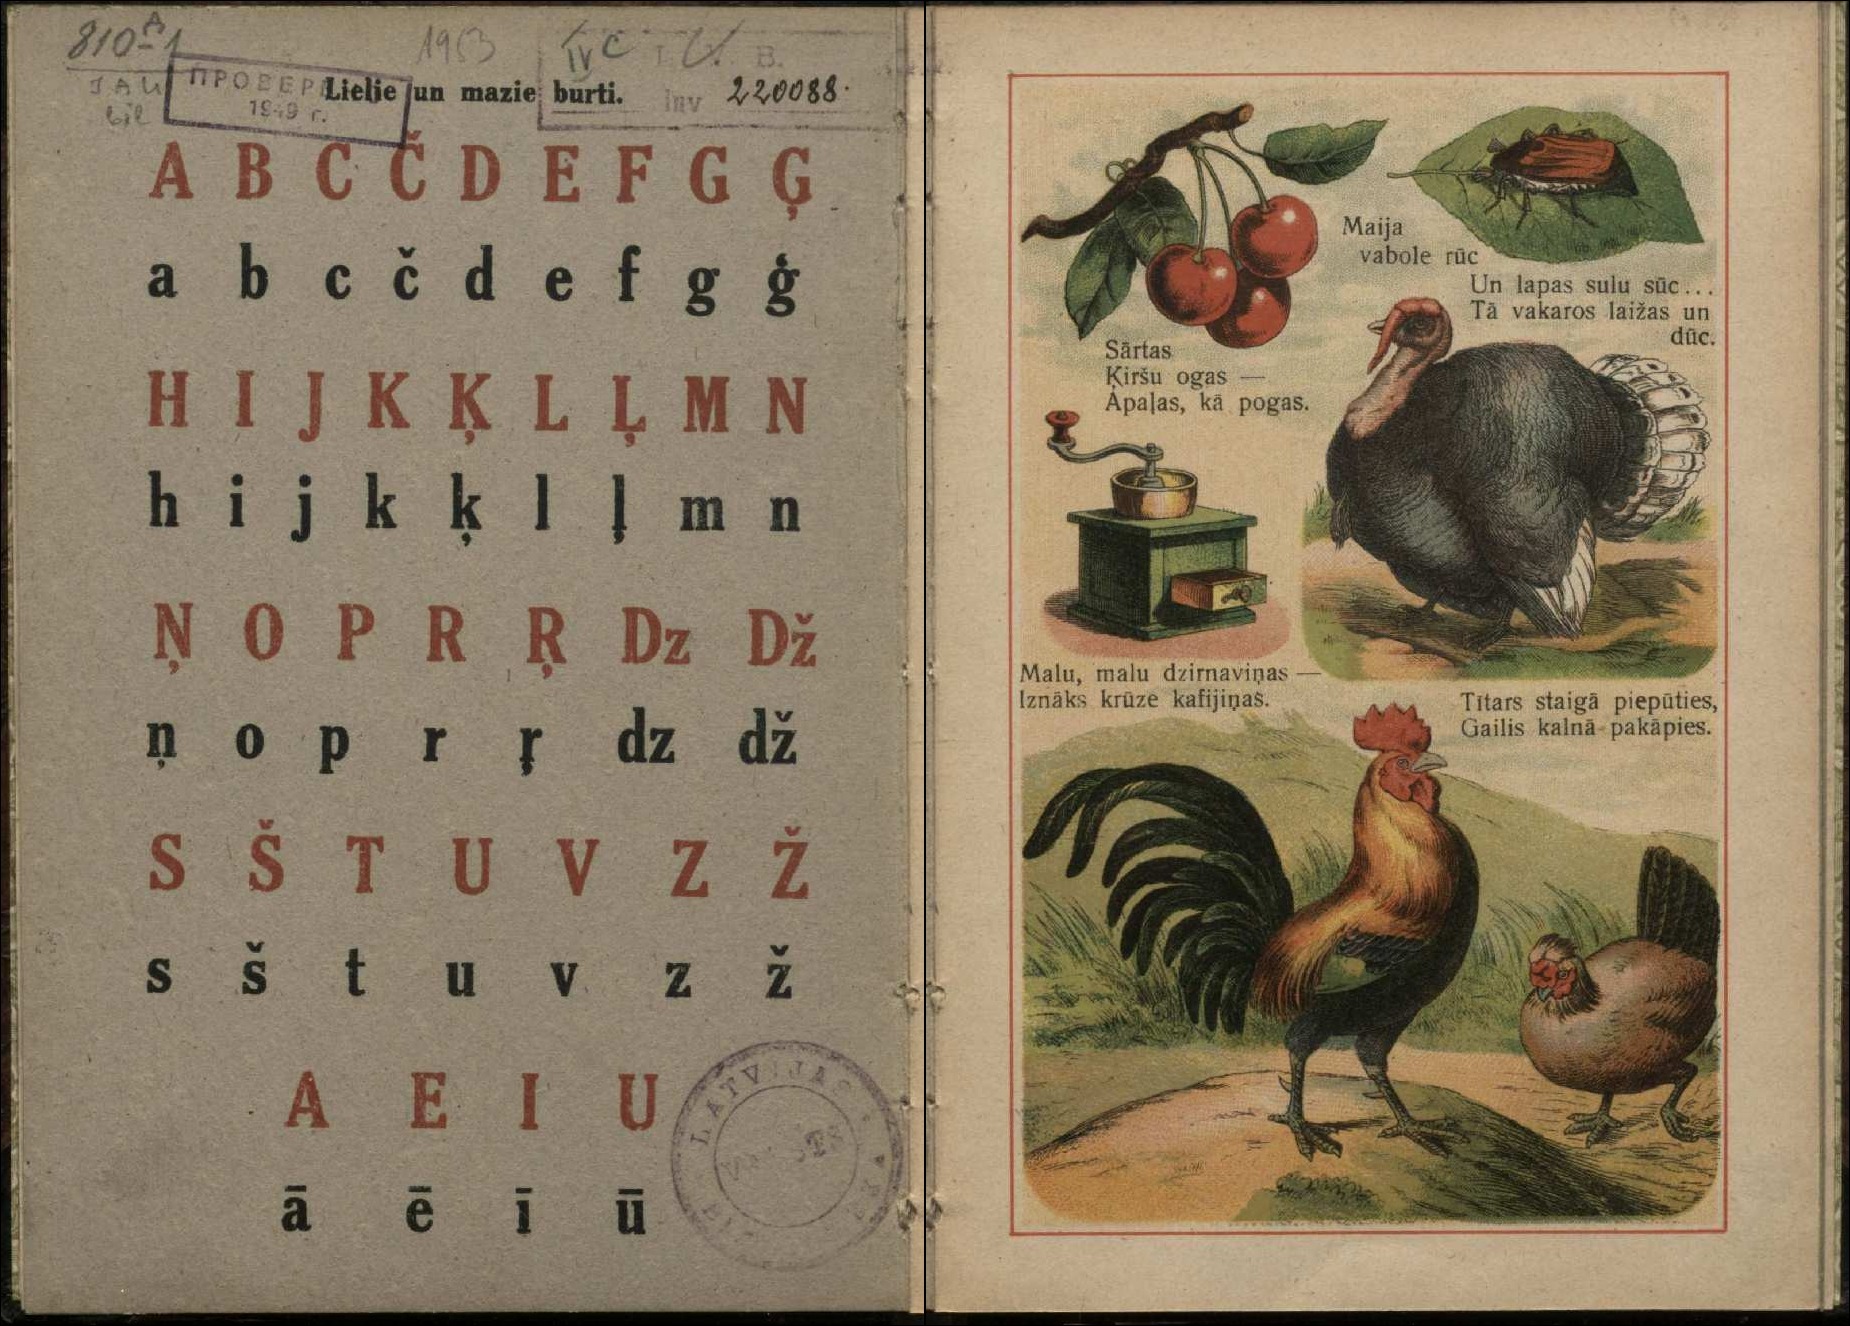 810
1953
IV C
ПРОВЕР
1949 г.
Inv 220088.
Lielie un mazie burti.
A B C Č D E F G Ģ
a b c č d e f g ģ
H I J K Ķ L Ļ M N
h i j k ķ l ļ m n
Ņ O P R Ŗ Dz Dž
ņ o p r ŗ dz dž
S Š T U V Z Ž
s š t u v z ž
A E I U
ā ē ī ū
LATVIJAS
Maija
vabole rūc
Un lapas sulu sūc...
Tā vakaros laižas un
dūc.
Sārtas
Ķiršu ogas —
Apaļas, kā pogas.
Malu, malu dzirnaviņas —
Iznāks krūze kafijiņas.
Tītars staigā piepūties,
Gailis kalnā pakāpies.